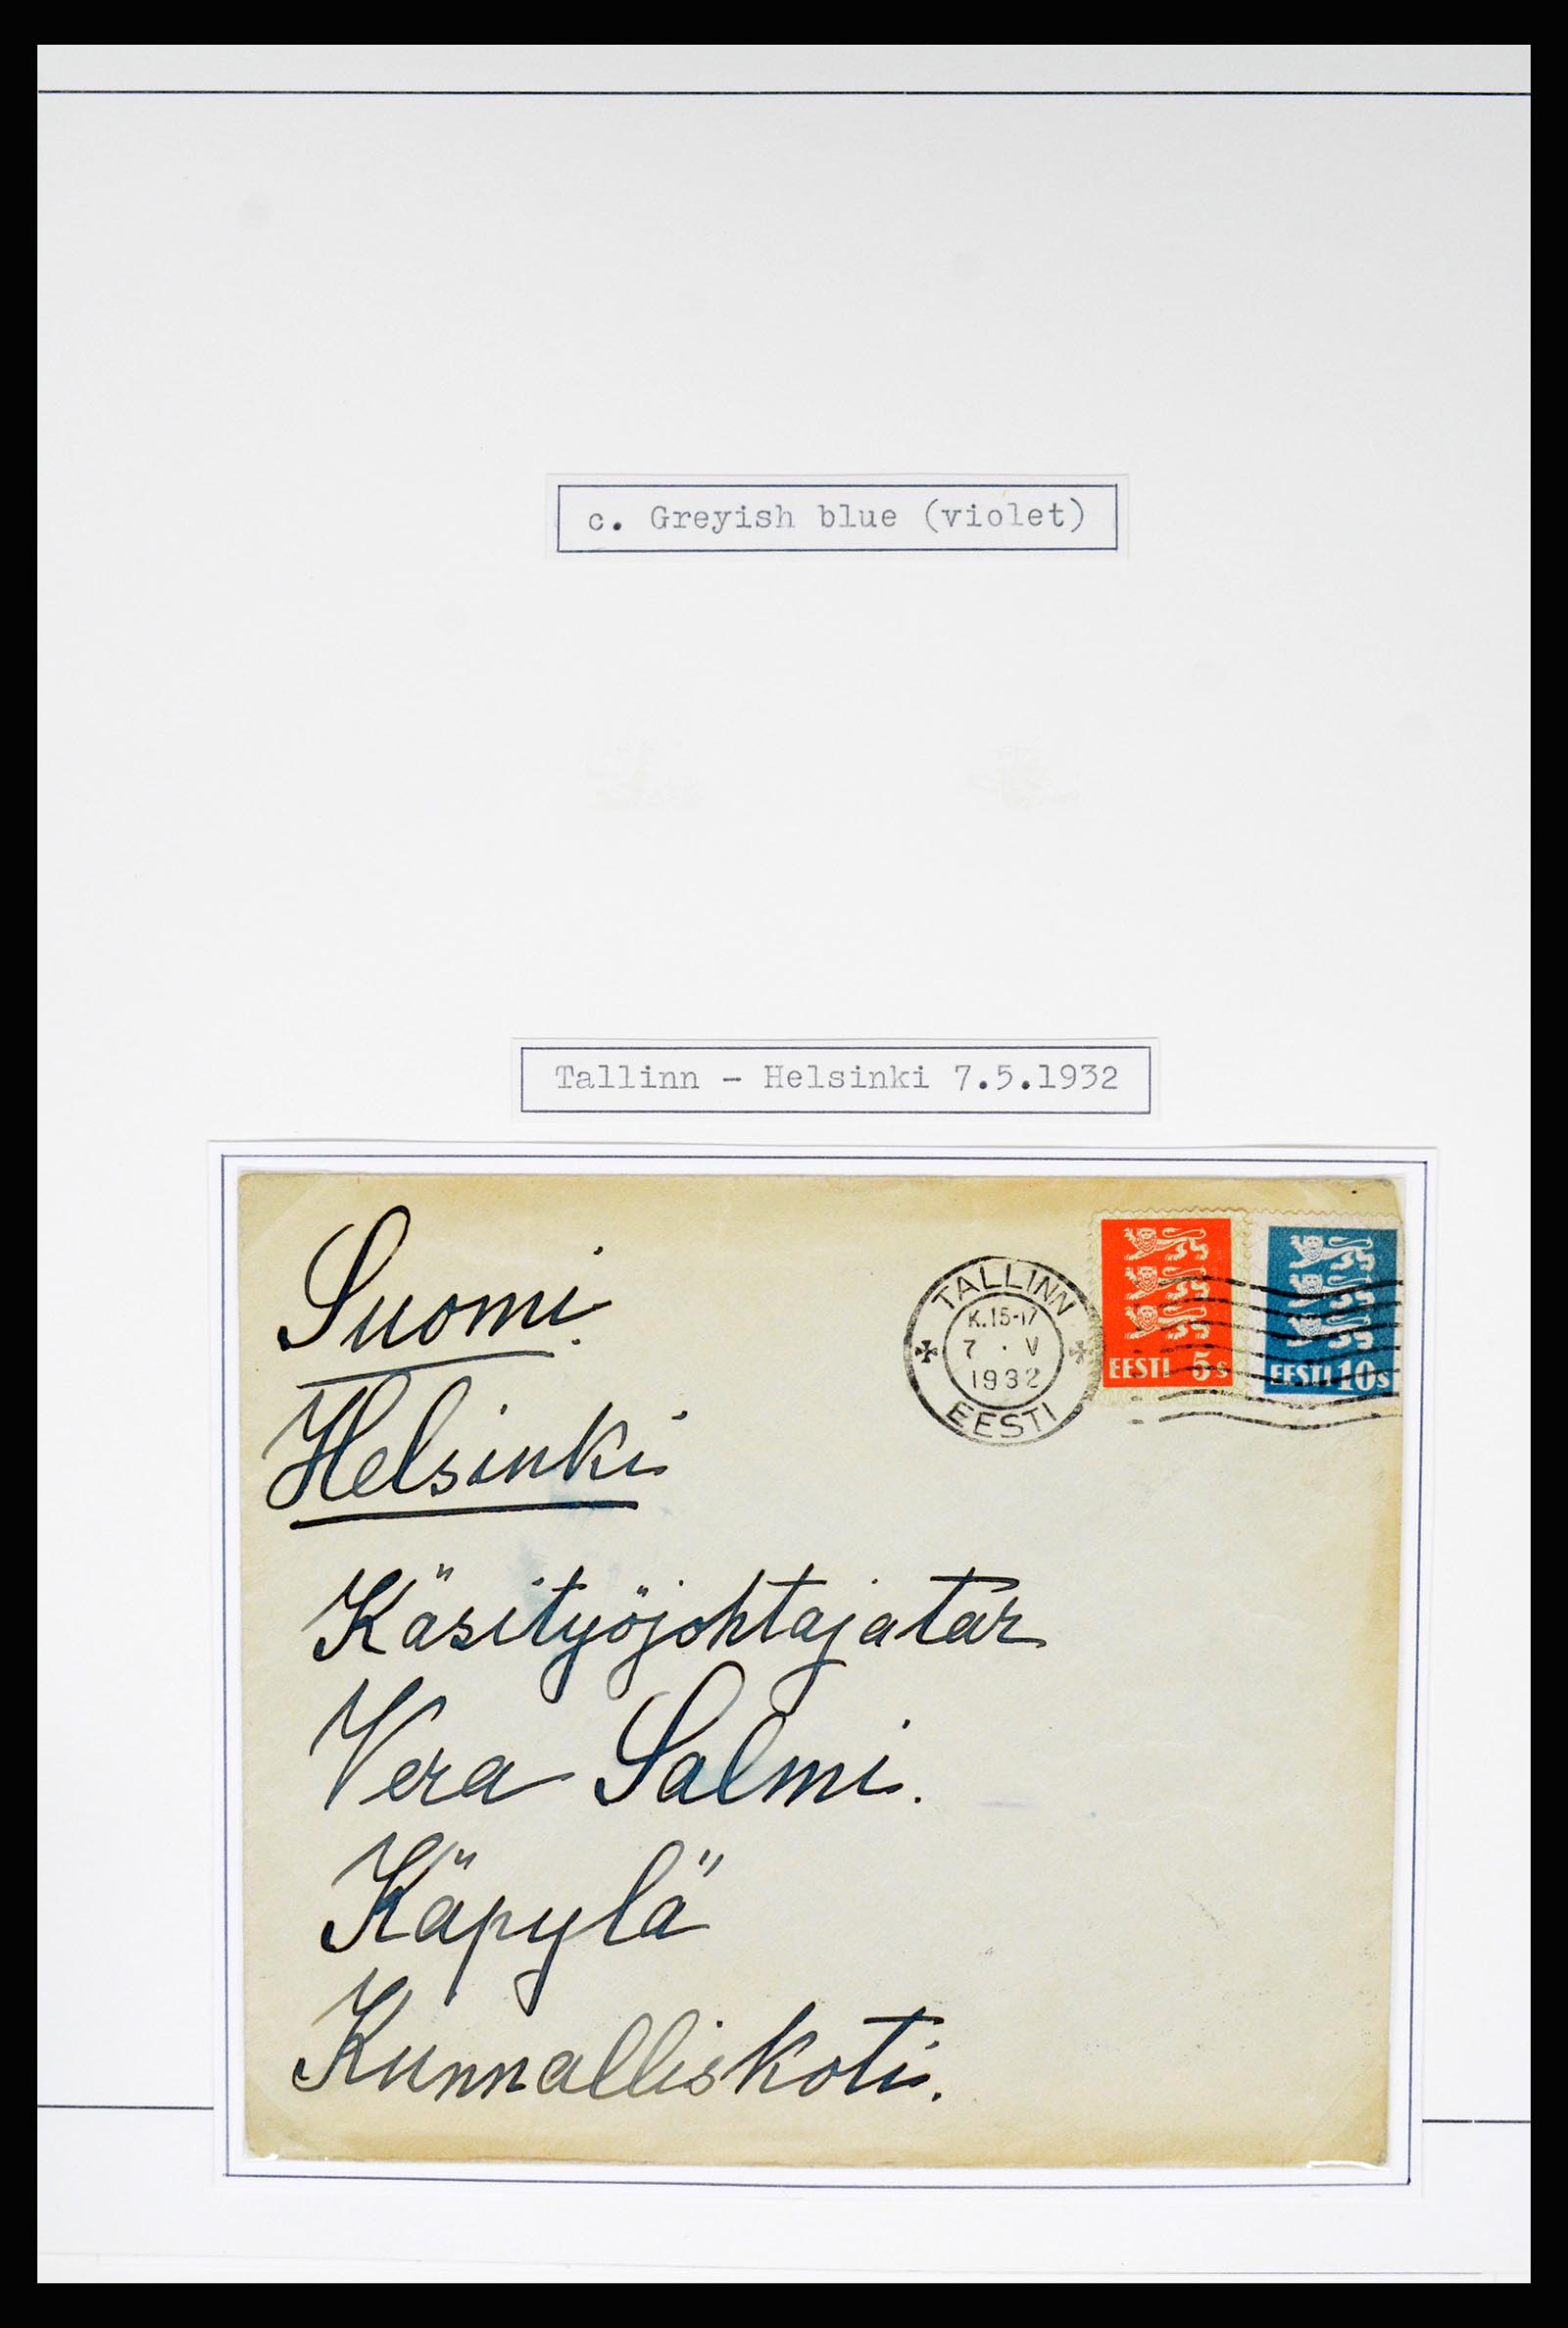 c. Greyish blue (violet)
Tallinn - Helsinki 7.5.1932
Suomi.
Helsinki
Käsityöjohtajatar
Vera Salmi.
Käpylä
Kunnalliskoti.
TALLINN
K.15-17
7 . V
1932
EESTI
EESTI 5s
EESTI 10s